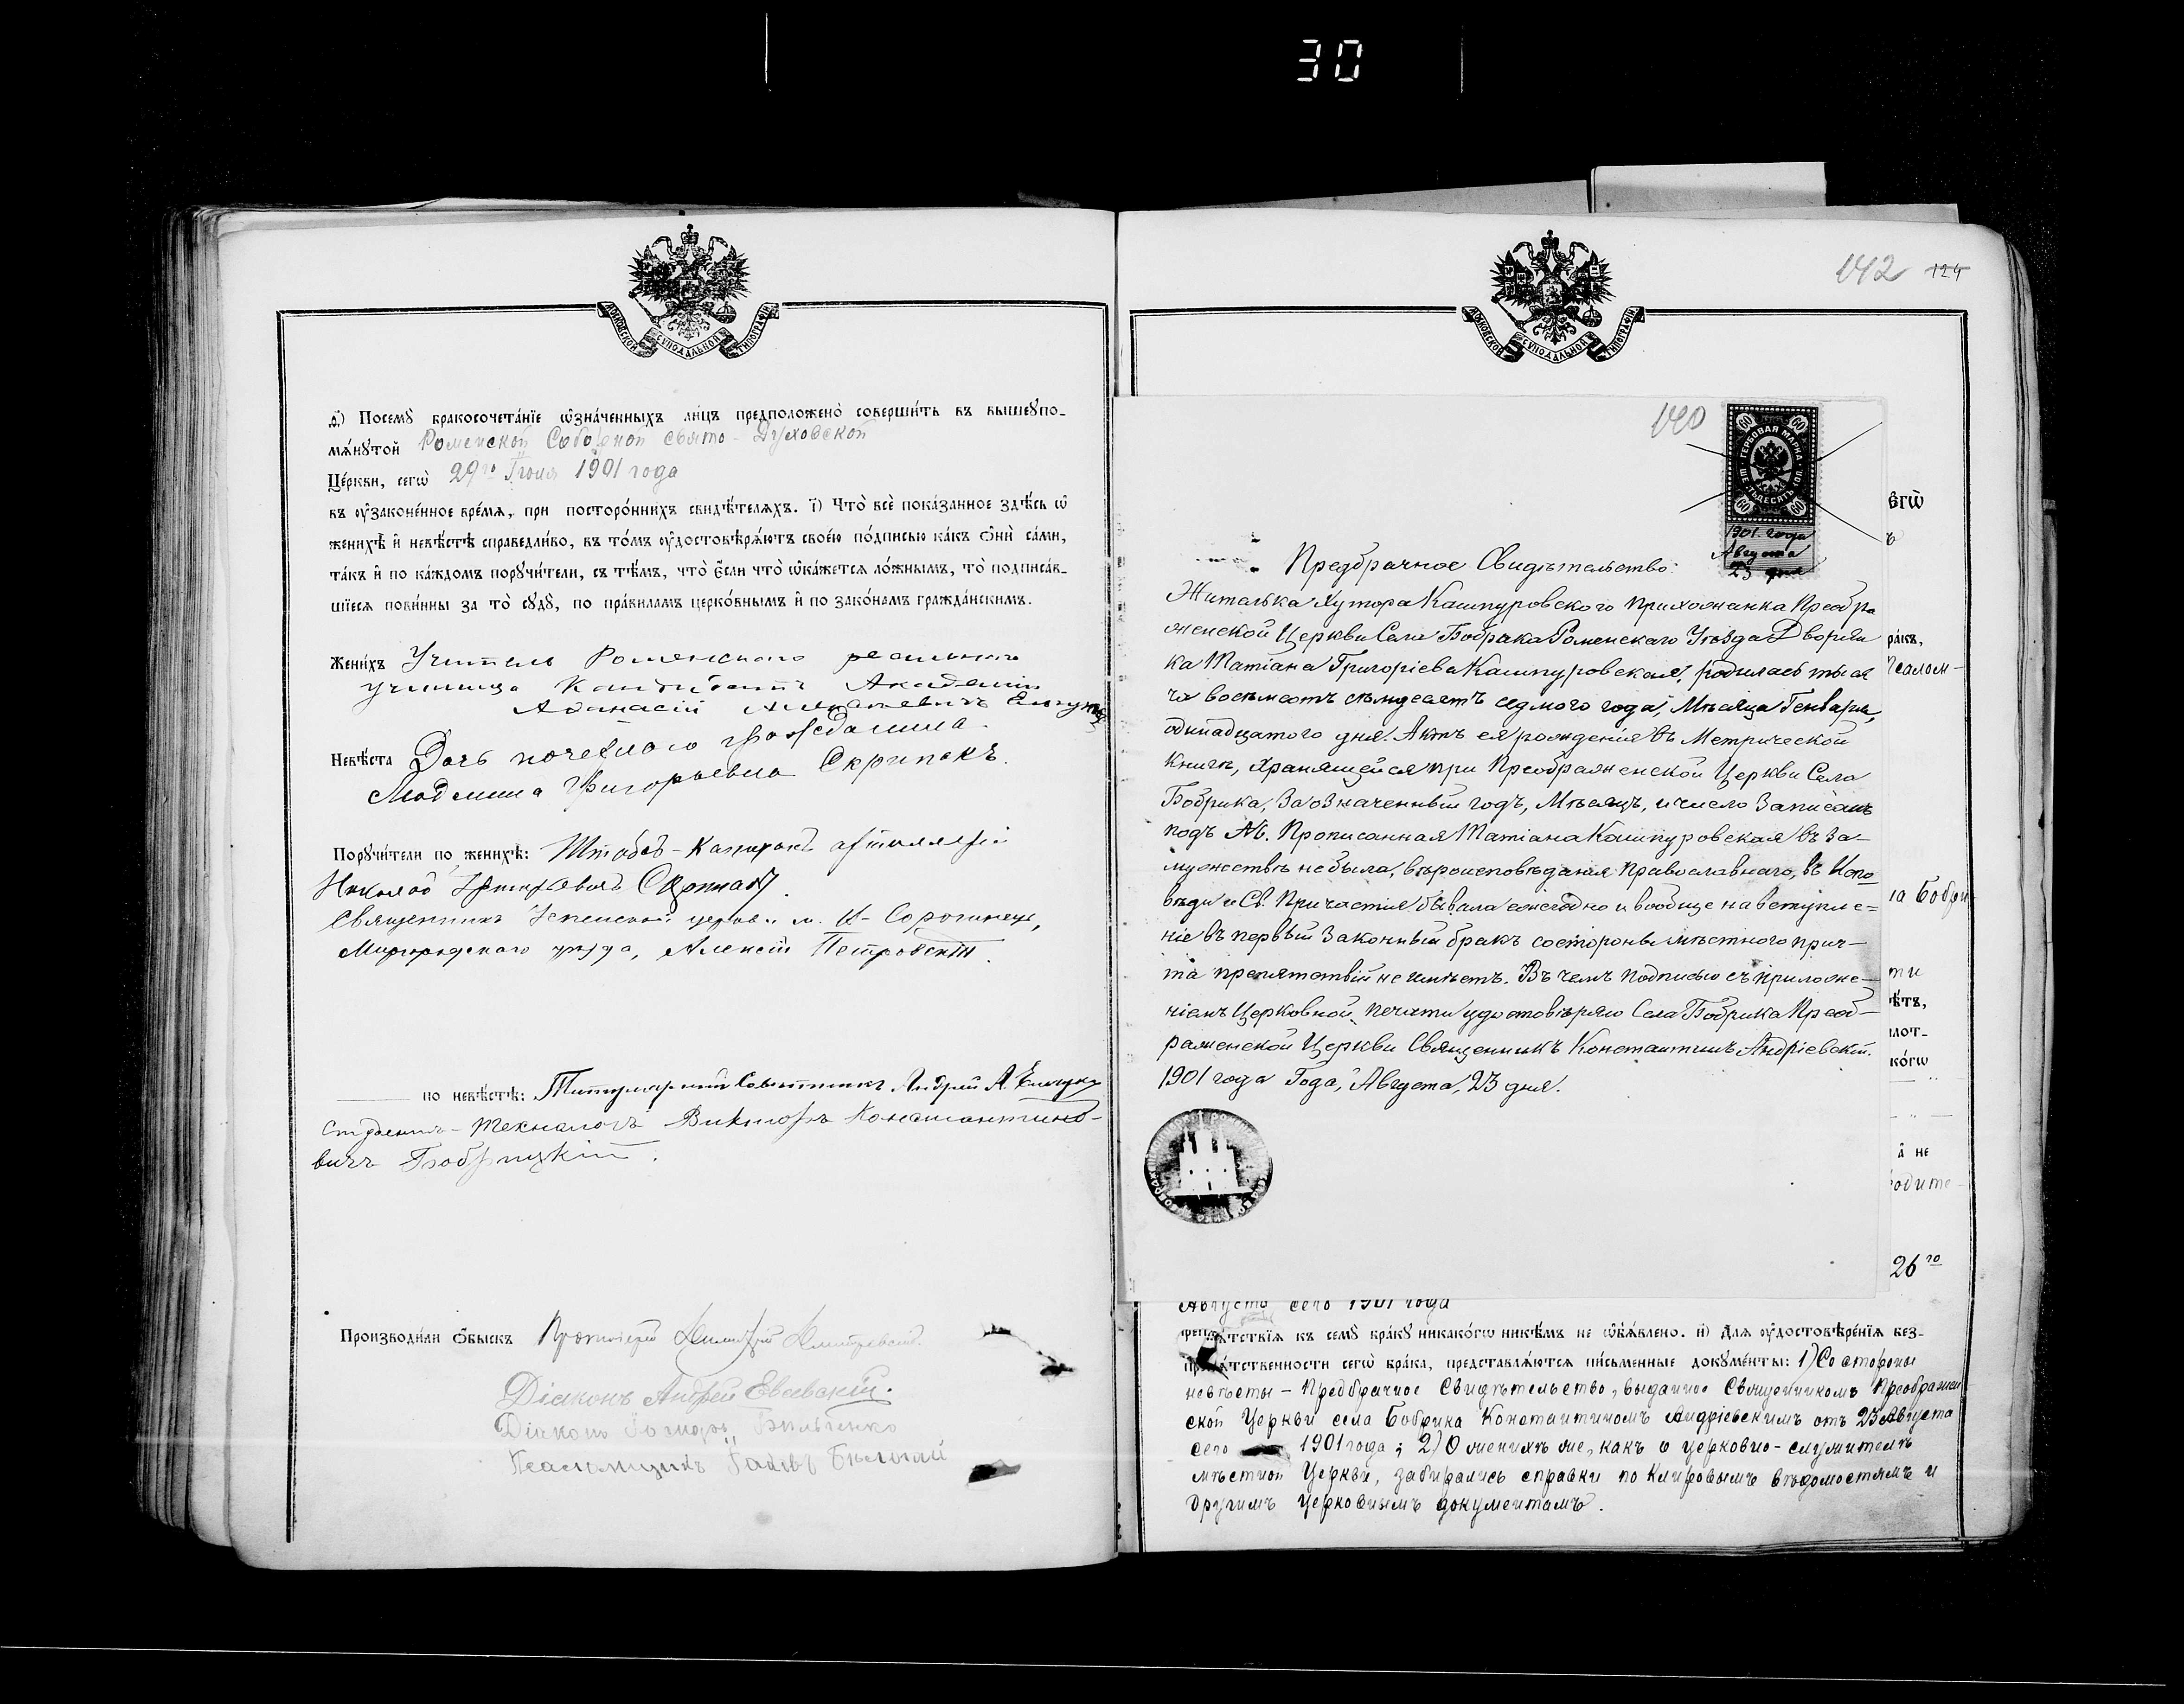 30
МОСКОВСКОЙ СѴНОДАЛЬНОЙ ТИПОГРАФІИ
ѳ҃) Посемꙋ̀ бракосочета́нїе ѡ҆зна́ченныхъ ли́цъ предположено̀ соверши́ть въ вышеꙋпо-
мѧ́нꙋтой Роменской Соборной Свято-Духовской
Це́ркви, сегѡ̀ 29го Іюля 1901 года
въ ᲂу҆зако́ненное вре́мѧ, при посторо́ннихъ свидѣ́телѧхъ. і҃) Что̀ всѐ пока́занное здѣ́сь ѡ҆
женихѣ̀ и҆ невѣ́стѣ справедли́во, въ то́мъ ᲂу҆достовѣрѧ́ютъ свое́ю по́дписью ка́къ ѻ҆нѝ са́ми,
та́къ и҆ по ка́ждомъ порꙋчи́тели, съ тѣ́мъ, что̀ є҆́сли что̀ ѡ҆ка́жетсѧ ло́жнымъ, то̀ подписа́в-
шїесѧ пови́нны за то̀ сꙋдꙋ̀, по пра́виламъ церко́внымъ и҆ по зако́намъ гражда́нскимъ.
Жени́хъ Учитель Роменского реальнаго
училища Кандидатъ Академіи
Аѳанасій
Невѣ́ста Дочь почетнаго гражданина
Людмила Григорьевна Скрипекъ.
Порꙋчи́тели по женихѣ̀: Штабсъ-Капитанъ артиллеріи
Николай
Священникъ Успенской церкви м. Сорочинецъ,
Миргородскаго уѣзда, Алексій Петровскій.
по невѣ́стѣ: Титулярный Совѣтникъ Андрей А.
Студентъ-технологъ Викторъ Константино-
вичъ
Производи́ли ѻ҆́быскъ Протоіерей Димитрій
Діаконъ Андрей Евсевскій.
Діаконъ Бильченко
Псаломщикъ Іаковъ
МОСКОВСКОЙ СѴНОДАЛЬНОЙ ТИПОГРАФІИ
142 124
140
60 60
ГЕРБОВАЯ МАРКА
ШЕСТЬДЕСЯТЪ КОП
60 60
1901. года
Августа
23 дня
Предбрачное Свидѣтельство:
Жителька Хутора Кашпуровского прихожанка Преобра
женской Церкви Села Бобрика Роменскаго Уѣзда Дворян
ка Татіана Григоріева Кашпуровская, родилась тыся
ча восемьсотъ семьдесятъ седмого года, Мѣсяца Генваря,
одинадцатого дня. Актъ ея рожденія въ Метрической
Книгѣ, хранящейся при Преображенской Церкви Села
Бобрика, за означенный годъ, Мѣсяцъ, и число Записанъ
подъ №. Прописанная Татіана Кашпуровская въ за-
мужествѣ не была, вѣроисповѣданія Православнаго, въ Испо-
вѣди и Св. Причастія бывала ежегодно и вообще на вступле=
ніе въ первый Законный бракъ состороны мѣстного прич-
та препятствій не имѣетъ. Въ чемъ подписью съ приложе-
ніемъ Церковной печати удостовѣряю Села Бобрика Преоб-
раженской Церкви Священникъ Константинъ Андріевскій.
1901 года Года, Августа, 23 дня.
вгѡ̀
ъ
ра́къ,
Псалом-
на Бобри-
ти
ѣтъ,
лот-
ко́гѡ
а҆ не
родите-
26го
Августа сего 1901 года
препѧ́тствїѧ къ семꙋ̀ бра́кꙋ никако́гѡ никѣ́мъ не ѡ҆б̾ѧ́влено. и҃) Длѧ ᲂу҆достовѣре́нїѧ без-
препѧ́тственности сегѡ̀ бра́ка, представлѧ́ютсѧ пи́сьменные докꙋме́нты: 1) Со стороны
невѣсты - Предбрачное Свидѣтельство, выданное Священникомъ Преображен
ской Церкви села Бобрика Константиномъ Андріевскимъ отъ 23 Августа
сего 1901 года; 2) О женихѣ же, какъ о церковно-служителѣ
мѣстной Церкви, забирались справки по Клировымъ вѣдомостямъ и
другимъ Церковнымъ документамъ.